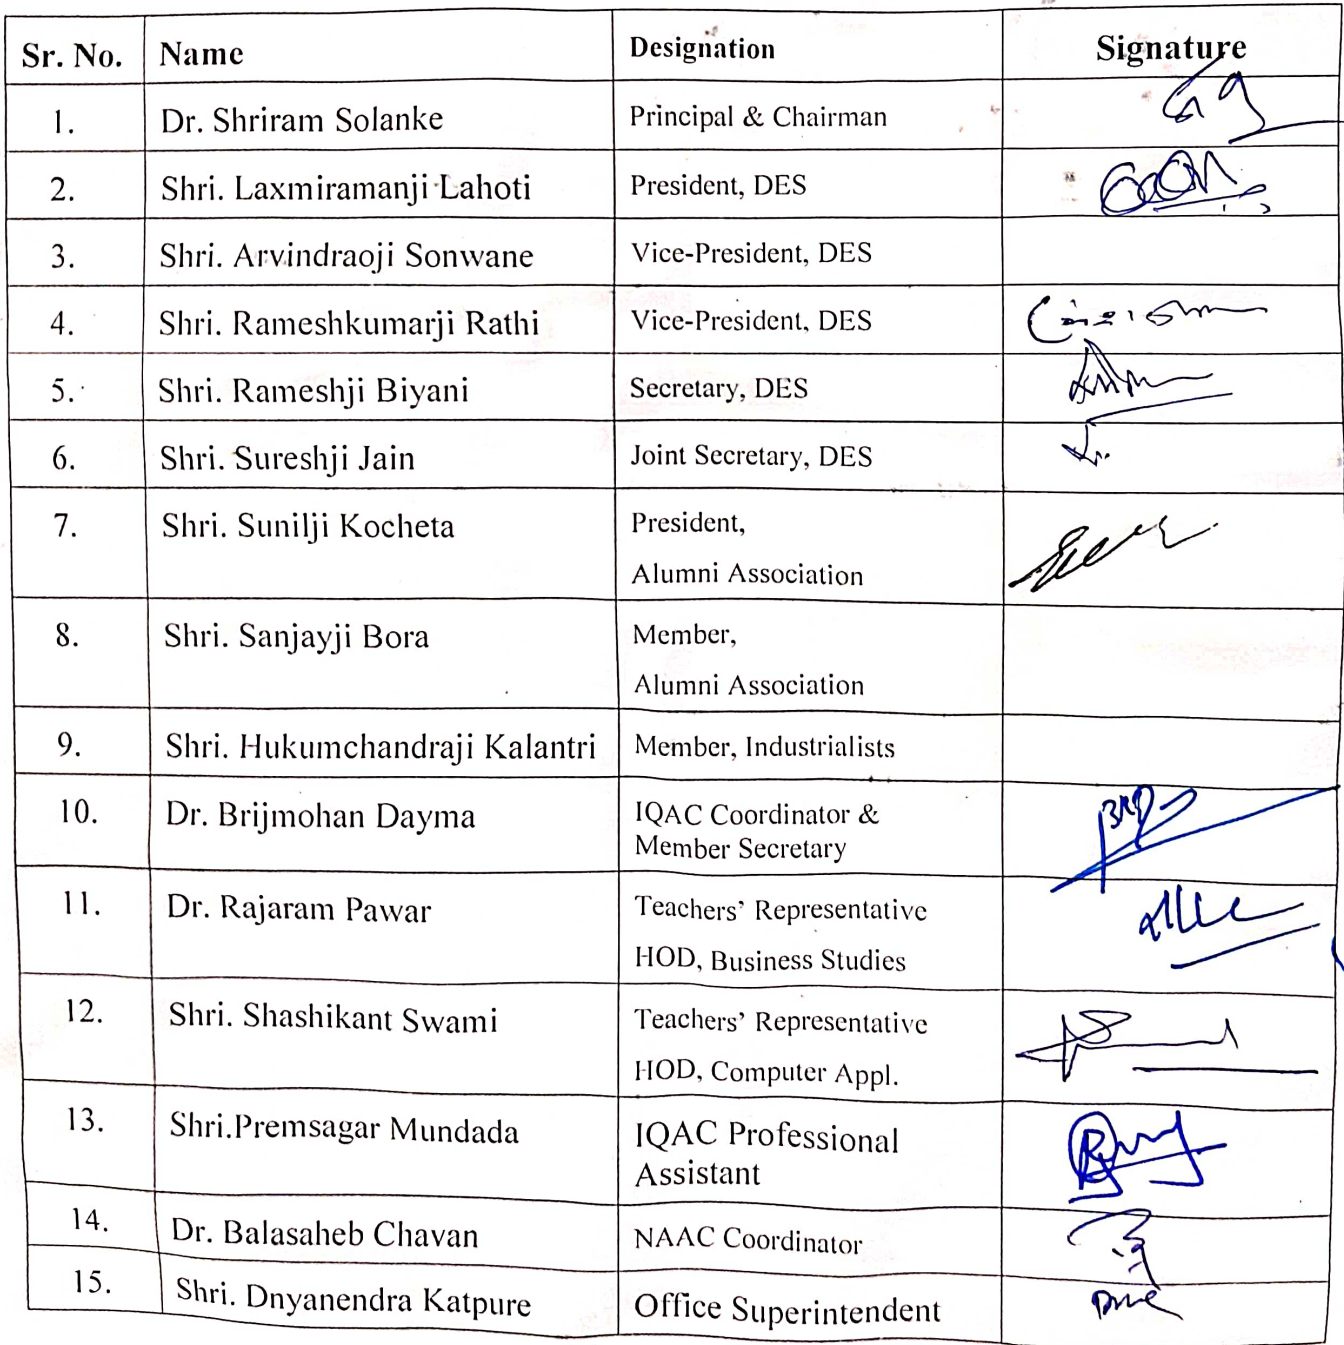 Sr. No. Name Designation Signature
1. Dr. Shriram Solanke Principal & Chairman
2. Shri. Laxmiramanji Lahoti President, DES
3. Shri. Arvindraoji Sonwane Vice-President, DES
4. Shri. Rameshkumarji Rathi Vice-President, DES
5. Shri. Rameshji Biyani Secretary, DES
6. Shri. Sureshji Jain Joint Secretary, DES
7. Shri. Sunilji Kocheta President,
Alumni Association
8. Shri. Sanjayji Bora Member,
Alumni Association
9. Shri. Hukumchandraji Kalantri Member, Industrialists
10. Dr. Brijmohan Dayma IQAC Coordinator &
Member Secretary
11. Dr. Rajaram Pawar Teachers’ Representative
HOD, Business Studies
12. Shri. Shashikant Swami Teachers’ Representative
HOD, Computer Appl.
13. Shri.Premsagar Mundada IQAC Professional
Assistant
14. Dr. Balasaheb Chavan NAAC Coordinator
15. Shri. Dnyanendra Katpure Office Superintendent